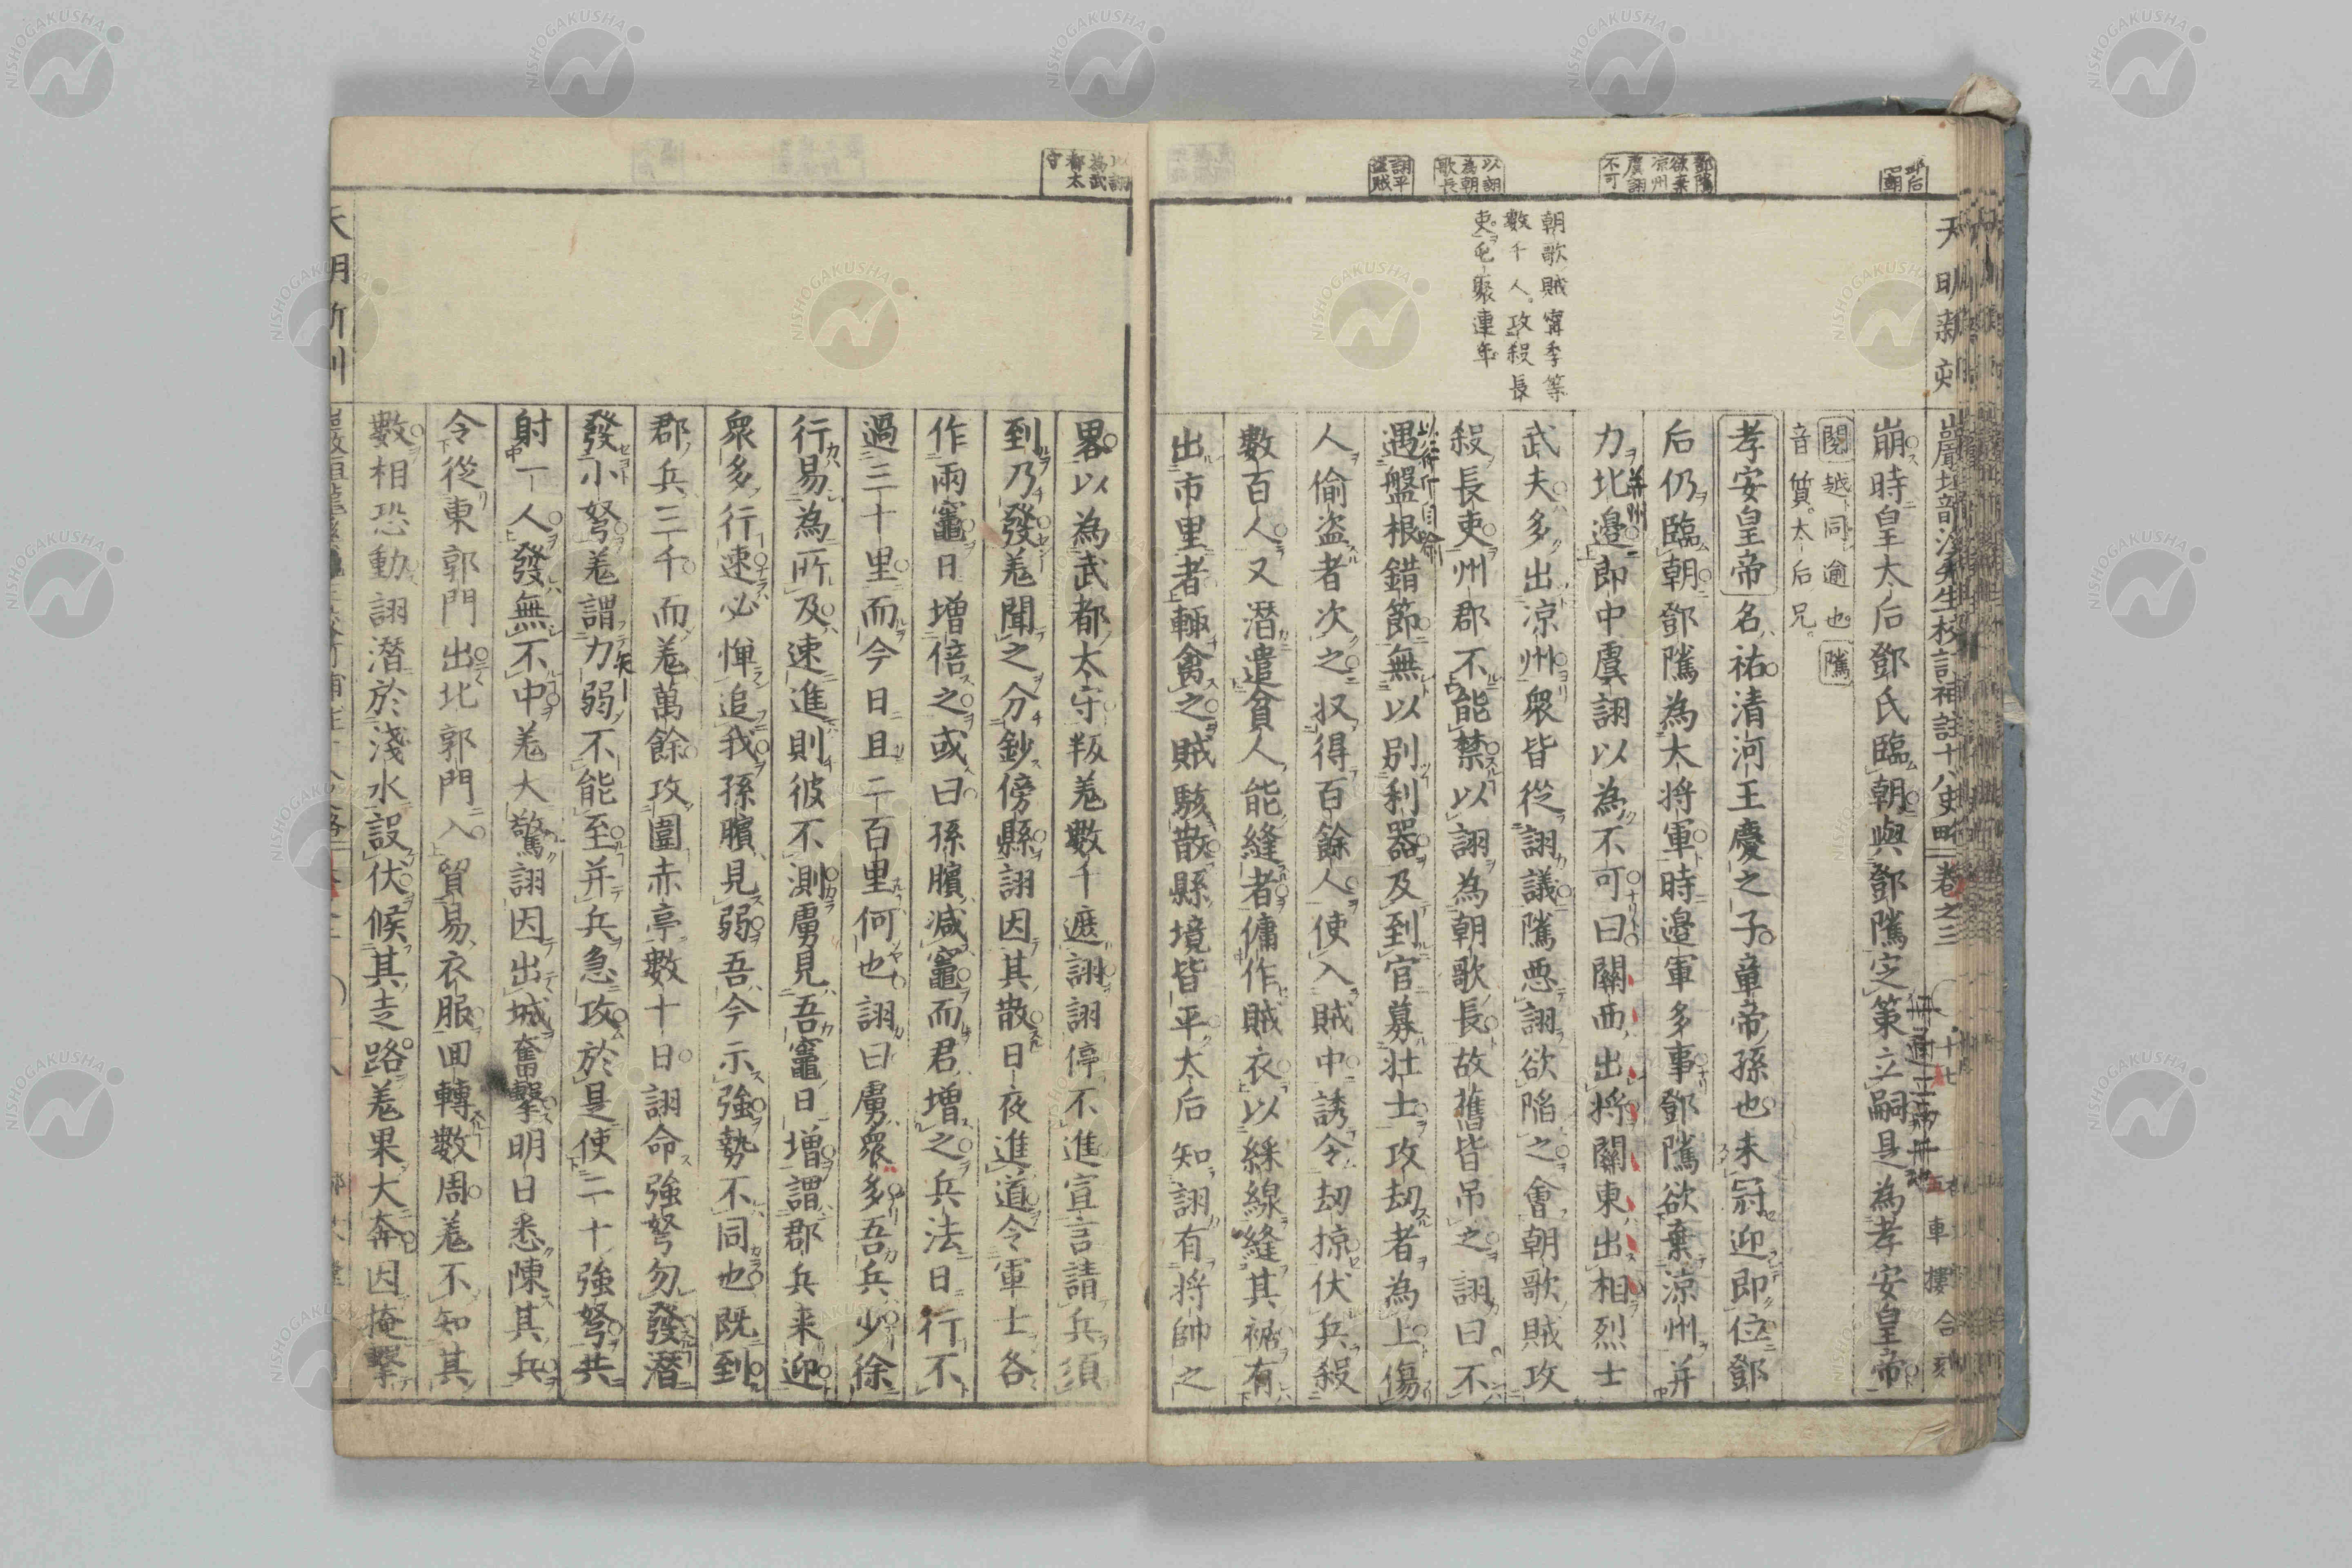 鄧后
臨朝
天明新刻
崩時皇太后鄧氏臨朝與鄧隲定策立嗣是為孝安皇帝
閱越同逾也隲
音質太后兄
孝安皇帝名祐清河王慶之子章帝孫也未冠迎即位鄧
鄧隲
欲棄
凉州
虞詡
不可
后仍臨朝鄧隲為大將軍時邉軍多事鄧隲欲棄凉州并
力北邉即中虞詡以為不可曰關西出將關東出相烈士
武夫多出凉州眾皆從詡議隲惡詡欲陷之會朝歌賊攻
朝歌賊甯季等
數千人攻殺長
吏屯聚連年
以詡
為朝
歌長
殺長吏州郡不能禁以詡為朝歌長故舊皆吊之詡曰不
遇盤根錯節無以别利器及到官募壮士攻劫者為上傷
詡平
盗賊
人偷盗者次之収得百餘人使入賊中誘令劫掠伏兵殺
數百人又潜遣貧人能縫者傭作賊衣以綵線縫其裾有
出市里者輙禽之賊駭散縣境皆平太后知詡有将帥之
以詡
為武
都太
守
畧以為武都太守叛羌數千遮詡詡停不進宣言請兵須
到乃發羌聞之分鈔傍縣詡因其散日夜進道令軍士各
作兩竈日增倍之或曰孫臏減竈而君增之兵法日行不
過三十里而今日且二百里何也詡曰虜眾多吾兵少徐
行易為所及速進則彼不測虜見吾竈日增謂郡兵来迎
眾多行速必憚追我孫臏見弱吾今示強勢不同也既到
郡兵三千而羌萬餘攻圍赤亭數十日詡命強弩勿發潜
發小弩羌謂力弱不能至并兵急攻於是使二十強弩共
射一人發無不中羌大驚詡因出城奮擊明日悉陳其兵
令從東郭門出北郭門入貿易衣服回轉數周羌不知其
數相恐動詡潜於淺水設伏候其走路羌果大奔因掩擊